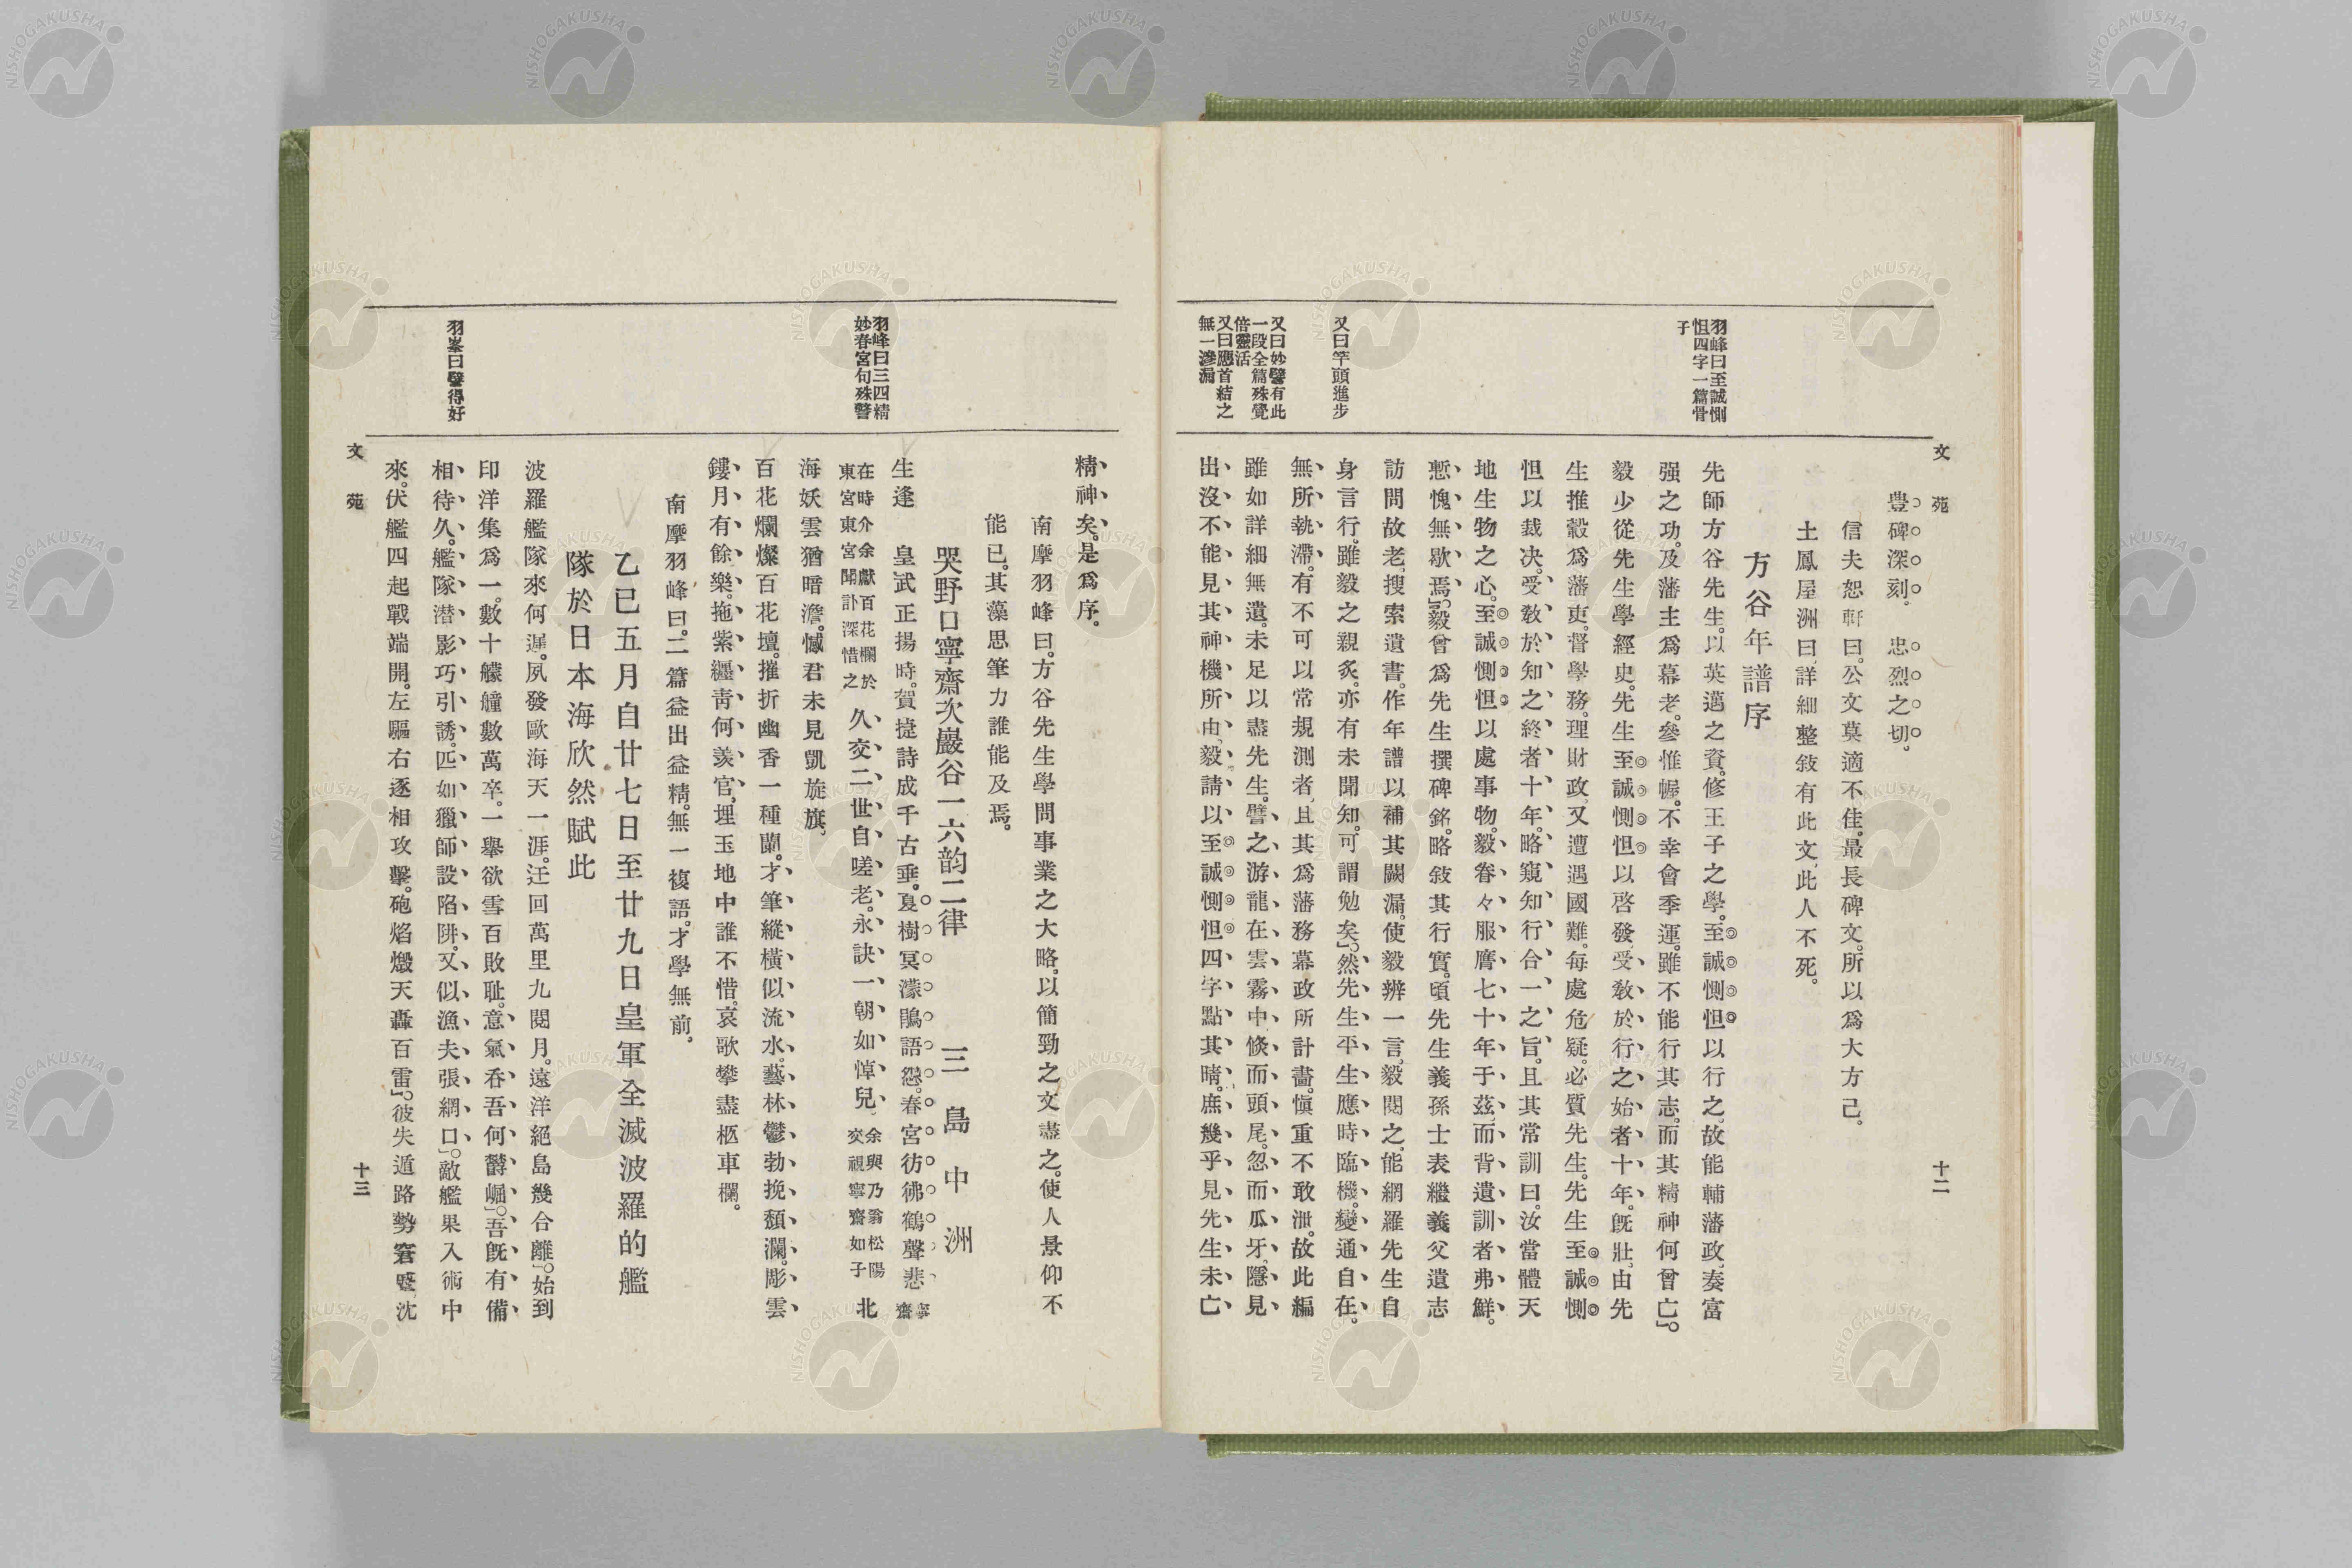 文苑
十二
羽峰曰至誠惻
怛四字一篇骨
子
又曰竿頭進步
又曰妙譬有此
一段全篇殊覺
倍靈活
又曰應首結之
無一滲漏
豊碑深刻。忠烈之切。
信夫恕軒曰。公文莫適不佳。最長碑文。所以爲大方己。
土鳳屋洲曰。詳細整敍有此文、此人不死。
方谷年譜序
先師方谷先生。以英邁之資。修王子之學。至誠惻怛以行之。故能輔藩政、奏富
强之功。及藩主爲幕老。參惟幄。不幸會季運。雖不能行其志。而其精神何曾亡」。
毅少從先生學經史。先生至誠惻怛以啓發、受敎於行之始者十年。旣壯、由先
生推轂爲藩吏。督學務。理財政、又遭遇國難。每處危疑。必質先生。先生至誠惻
怛以裁决。受敎於知之終者十年。略窺知行合一之旨。且其常訓曰。汝當體天
地生物之心。至誠惻怛以處事物。毅眷々服膺七十年于茲。而背遺訓者弗鮮。
慙愧無歇焉」。毅曾爲先生撰碑銘。略敍其行實。頃先生義孫士表繼義父遺志
訪問故老、搜索遺書。作年譜以補其闕漏。使毅辨一言。毅閱之。能網羅先生自
身言行。雖毅之親炙。亦有未聞知。可謂勉矣」。然先生平生應時臨機。變通自在。
無所執滯。有不可以常規測者、且其爲藩務幕政所計畵。愼重不敢泄。故此編
雖如詳細無遺。未足以盡先生。譬之游龍在雲霧中倏而頭尾。忽而瓜牙、隱見
出沒不能見其神機所由、毅請以至誠惻怛四字點其晴。庶幾乎見先生未亡
羽峰曰三四精
妙春宮句殊警
羽峯曰譬得好
精神矣。是爲序。
南摩羽峰曰。方谷先生學問事業之大略。以簡勁之文盡之。使人景仰不
能已。其藻思筆力誰能及焉。
哭野口寧齋次巖谷一六韵二律 三島中洲
生逢 皇武正揚時。賀捷詩成千古垂。夏樹冥濛鵑語怨。春宮彷彿鶴聲悲 寧齋
在時介余獻百花欄於東宮東宮聞訃深惜之 久交二世自嗟老。永訣一朝如悼兒 余與乃翁松陽交視寧齋如子 北
海妖雲猶暗澹。憾君未見凱旋旗、
百花爛燦百花壇。摧折幽香一種蘭。才筆縱橫似流水。藝林鬱勃挽頽瀾。彫雲
鏤月有餘樂。拖紫纒靑何羨官。埋玉地中誰不惜。哀歌攀盡柩車欄。
南摩羽峰曰。二篇益出益精。無一複語。才學無前。
乙巳五月自廿七日至廿九日皇軍全滅波羅的艦
隊於日本海欣然賦此
波羅艦隊來何遲。夙發歐海天一涯。迂回萬里九閱月。遠洋絕島幾合離」。始到
印洋集爲一。數十艨艟數萬卒。一擧欲雪百敗耻。意氣吞吾何欝崛」。吾旣有備
相待久。艦隊潜影巧引誘。匹如獵師設陷阱。又似漁夫張網口」。敵艦果入術中
來。伏艦四起戰端開。左驅右逐相攻擊。砲焰燬天轟百雷」。彼失遁路勢窘蹙、沈
文苑
十三